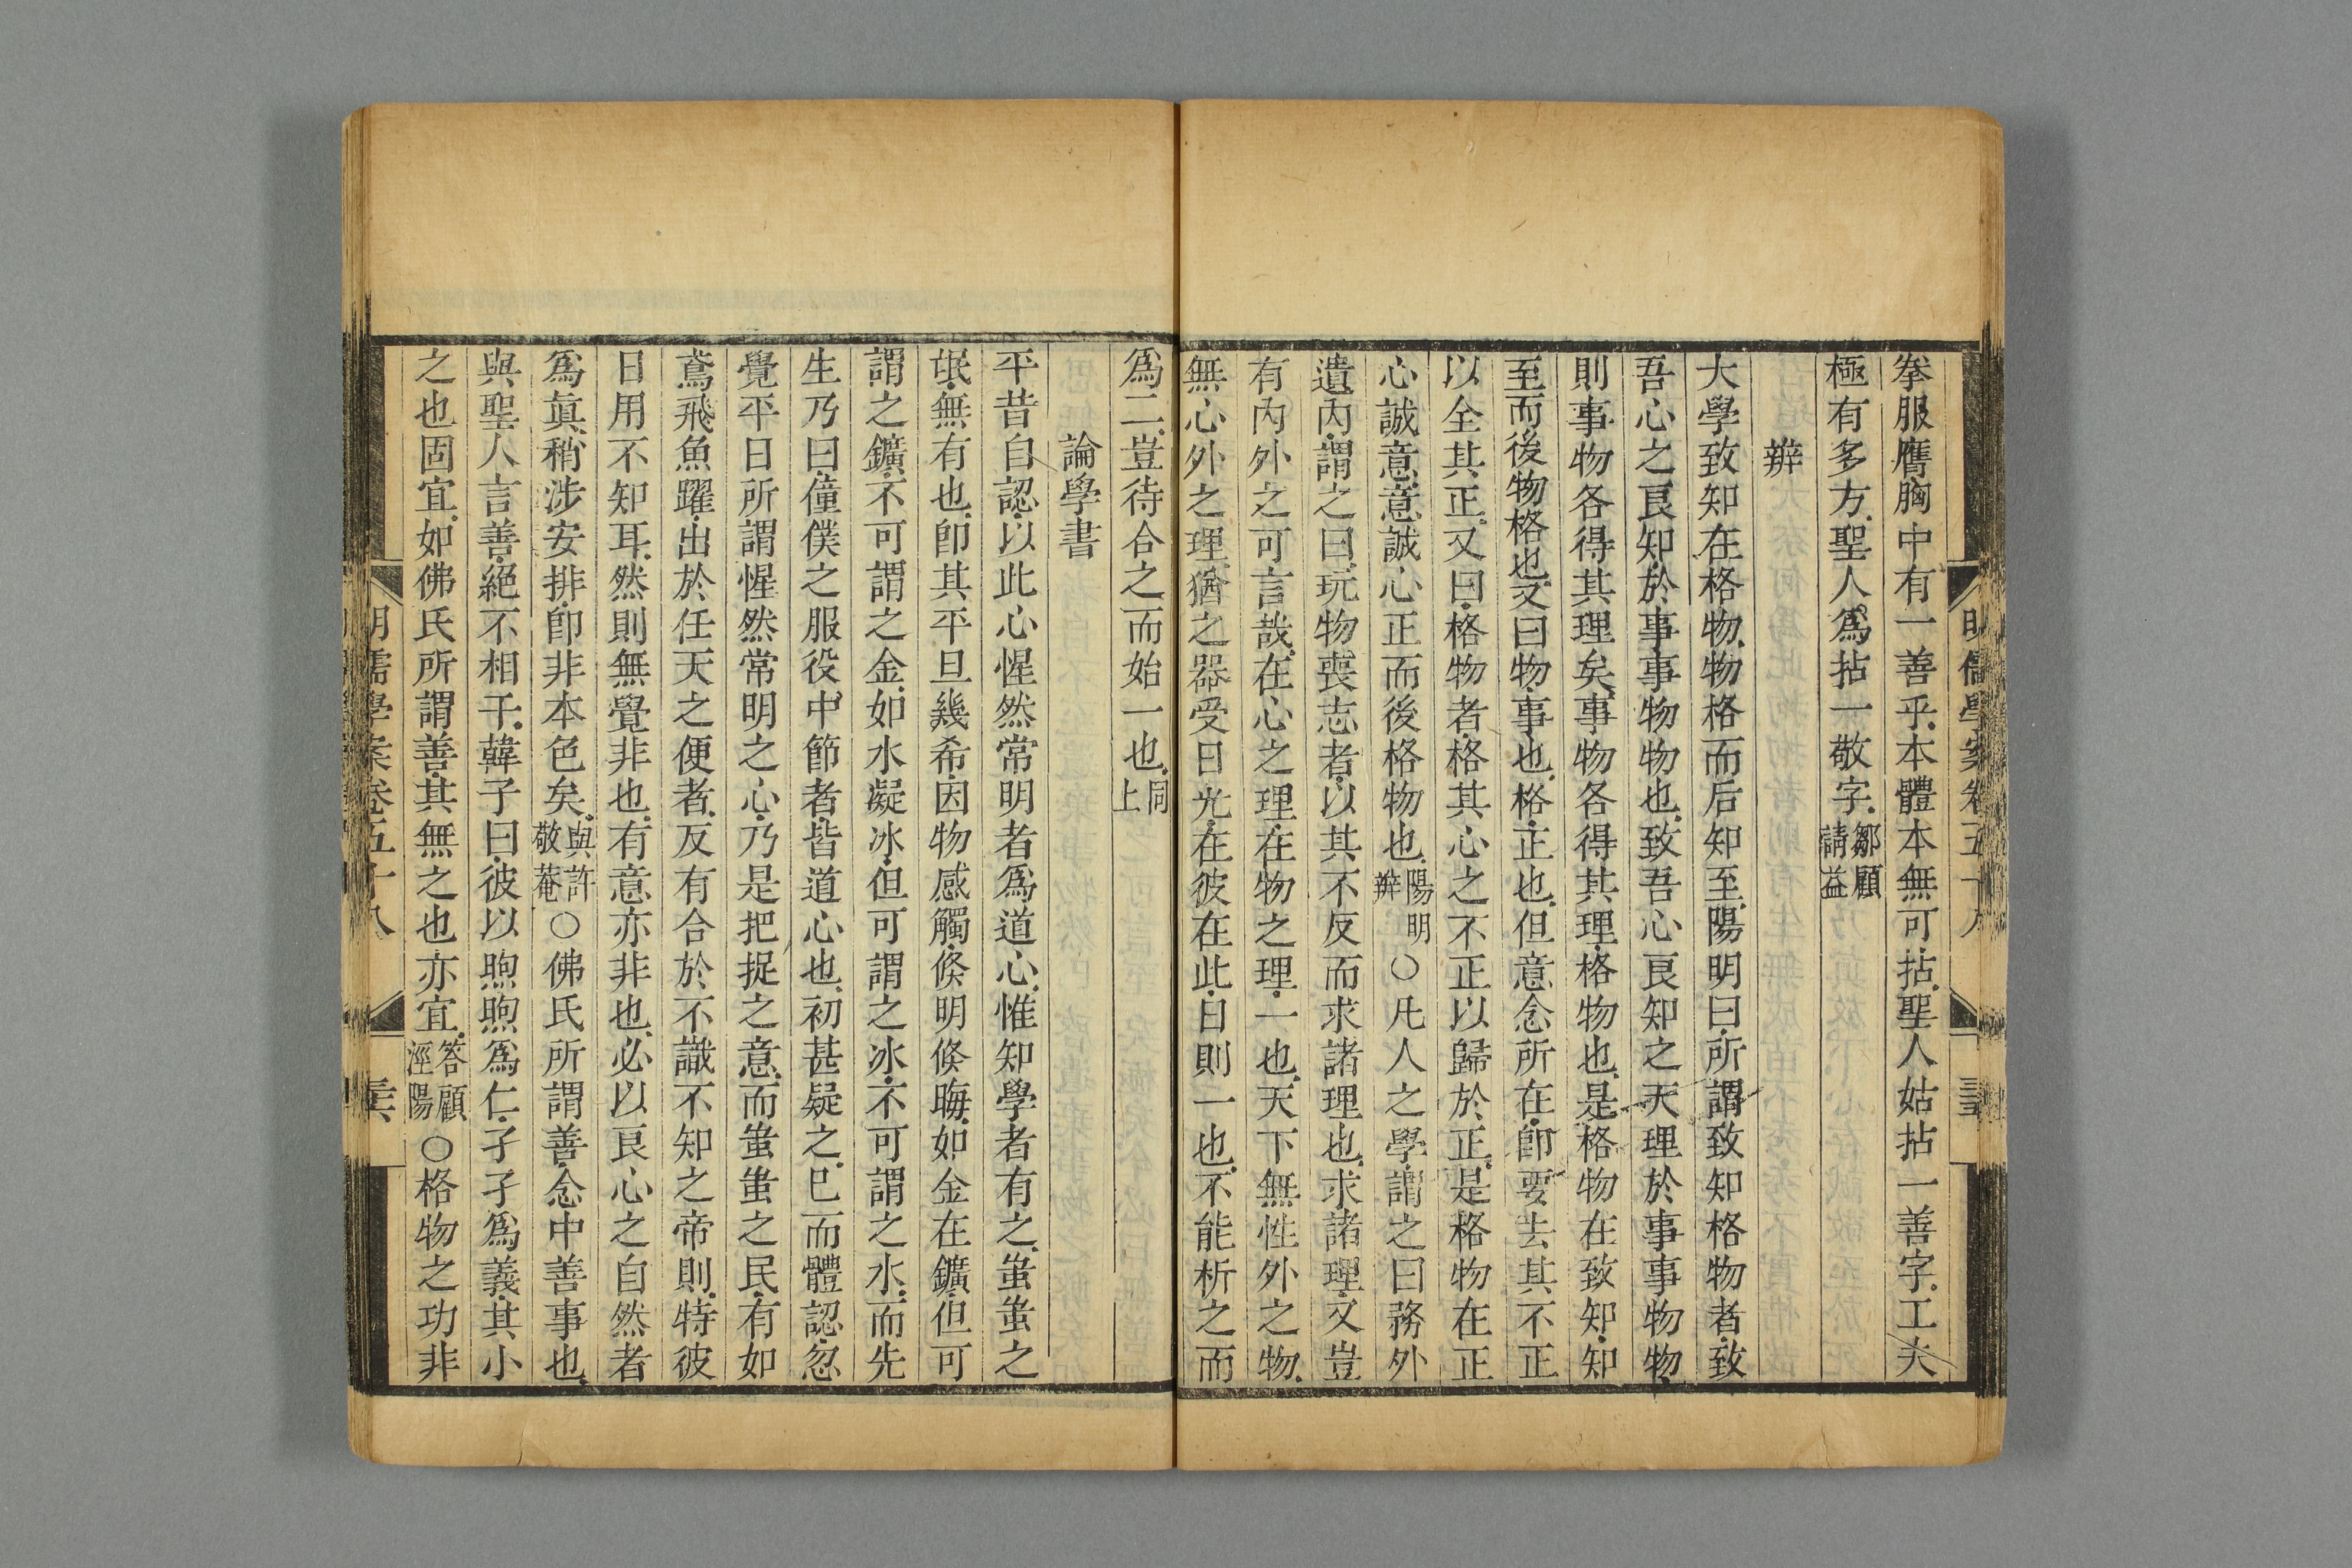 明儒學案卷五十八
拳服膺胸中有一善乎本體本無可拈聖人姑拈一善字工夫
極有多方聖人爲拈一敬字鄒顧請益
辨
大學致知在格物物格而后知至陽明曰所謂致知格物者致
吾心之良知於事事物物也致吾心良知之天理於事事物物
則事物各得其理矣事物各得其理格物也是格物在致知知
至而後物格也又曰物事也格正也但意念所在卽要去其不正
以全其正又曰格物者格其心之不正以歸於正是格物在正
心誠意意誠心正而後格物也陽明辨○凡人之學謂之曰務外
遺內謂之曰玩物喪志者以其不反而求諸理也求諸理又豈
有內外之可言哉在心之理在物之理一也天下無性外之物
無心外之理猶之器受日光在彼在此日則一也不能析之而
爲二豈待合之而始一也同上
論學書
平昔自認以此心惺然常明者爲道心惟知學者有之蚩蚩之
氓無有也卽其平旦幾希因物感觸倏明倏晦如金在鑛但可
謂之鑛不可謂之金如水凝冰但可謂之冰不可謂之水而先
生乃曰僮僕之服役中節者皆道心也初甚疑之已而體認忽
覺平日所謂惺然常明之心乃是把捉之意而蚩蚩之民有如
鳶飛魚躍出於任天之便者反有合於不識不知之帝則特彼
日用不知耳然則無覺非也有意亦非也必以良心之自然者
爲眞稍涉安排卽非本色矣與許敬菴○佛氏所謂善念中善事也
與聖人言善絕不相干韓子曰彼以煦煦爲仁孑孑爲義其小
之也固宜如佛氏所謂善其無之也亦宜答顧涇陽○格物之功非
明儒學案卷五十八